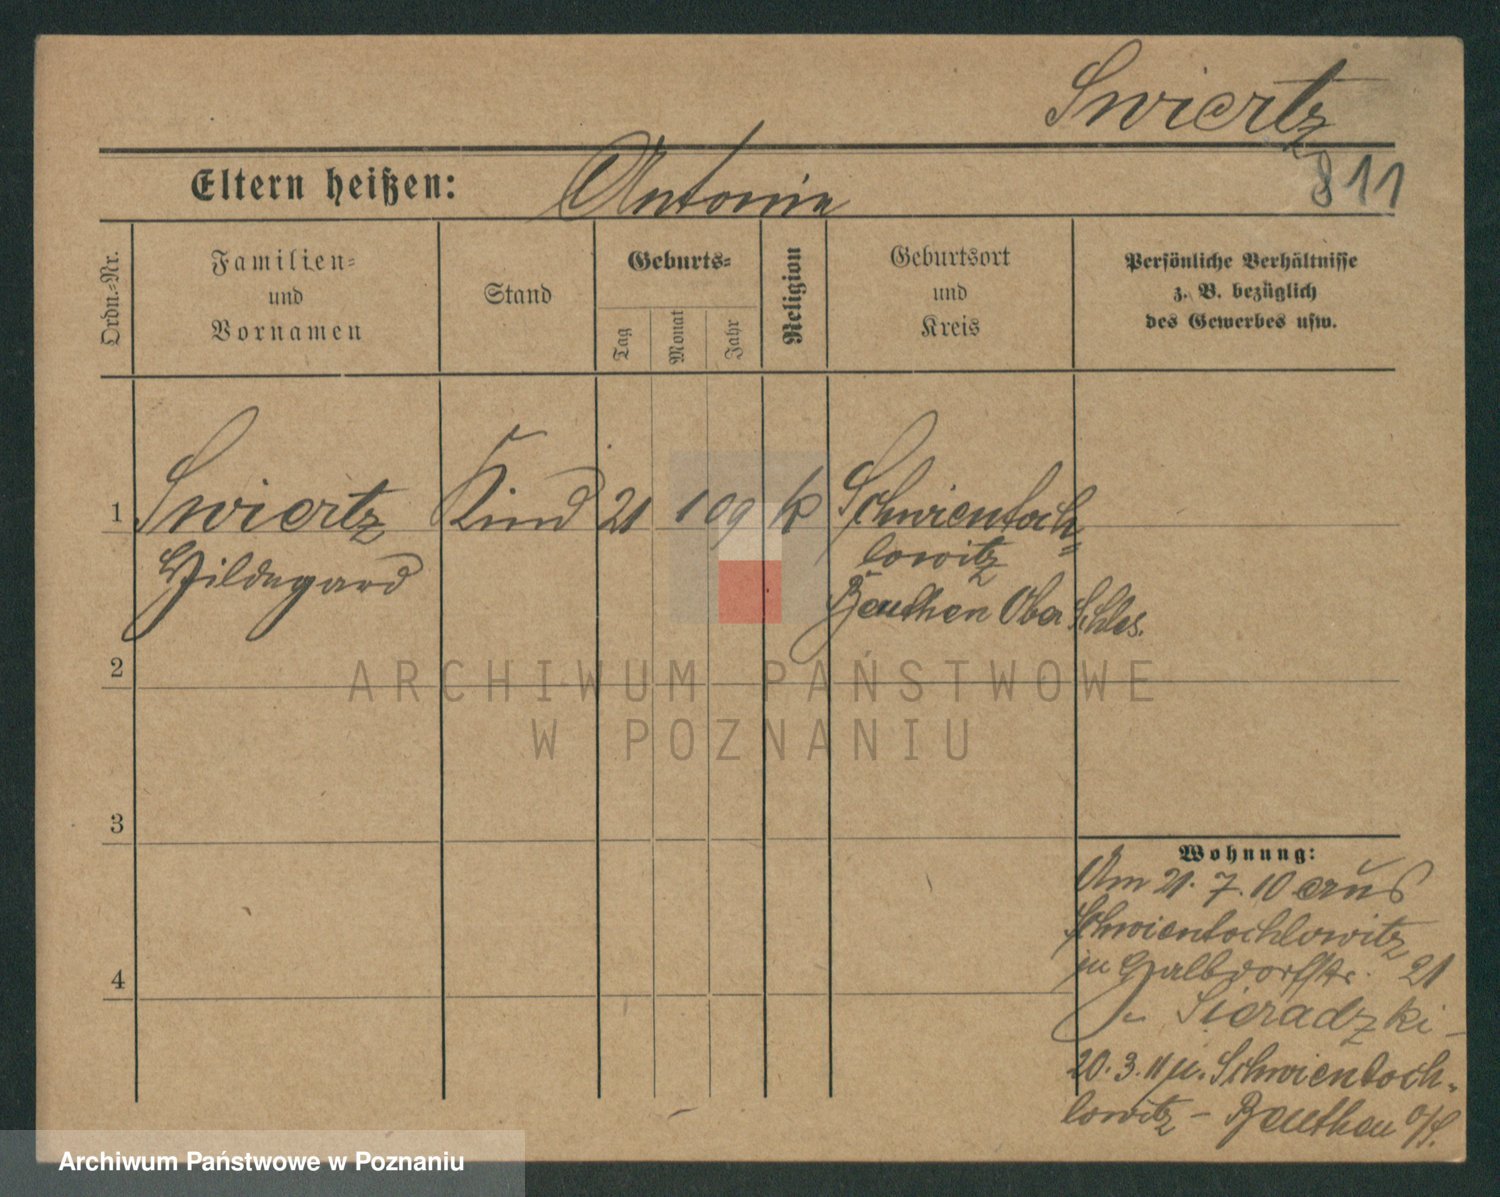 Swiertz
811
Eltern heißen: Antonie
Ordn.-Nr.
Familien-
und
Vornamen
Stand
Geburts-
Tag
Monat
Jahr
Religion
Geburtsort
und
Kreis
Persönliche Verhältnisse
z. B. bezüglich
des Gewerbes usw.
1 Swiertz Kind 21 1 09 k Schwientoch-
Hildegard lowitz
Beuthen Ober Schles.
2
3
4
Wohnung:
Am 21. 7. 10 aus
Schwientochlowitz
21
Sieradzki
20. 3. 11 n. Schwientoch-
lowitz - Beuthen O/S.
ARCHIWUM PAŃSTWOWE
W POZNANIU
Archiwum Państwowe w Poznaniu